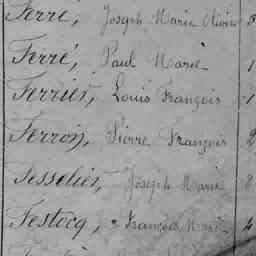 Ferré, Joseph Marie Olivier
Ferré, Paul Marie 1
Ferrier, Louis François 1
Ferron, Pierre François 2
Fesselier, Joseph Marie 8
Festocq, François Marie 4